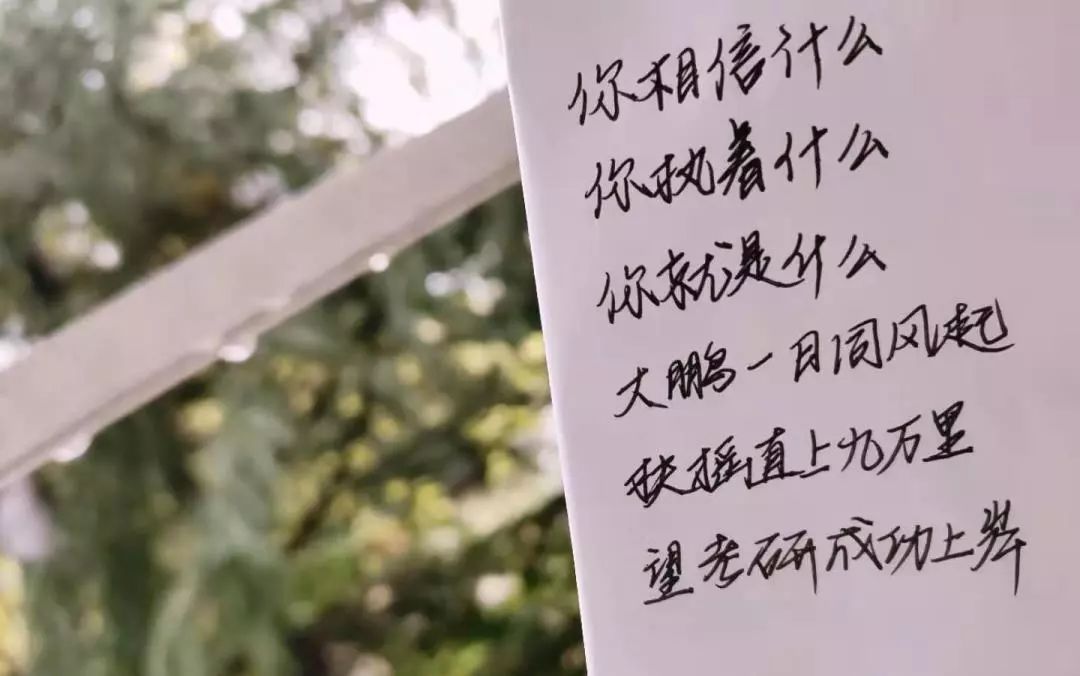 你相信什么
你执着什么
你就是什么
大鹏一日同风起
扶摇直上九万里
望考研成功上岸